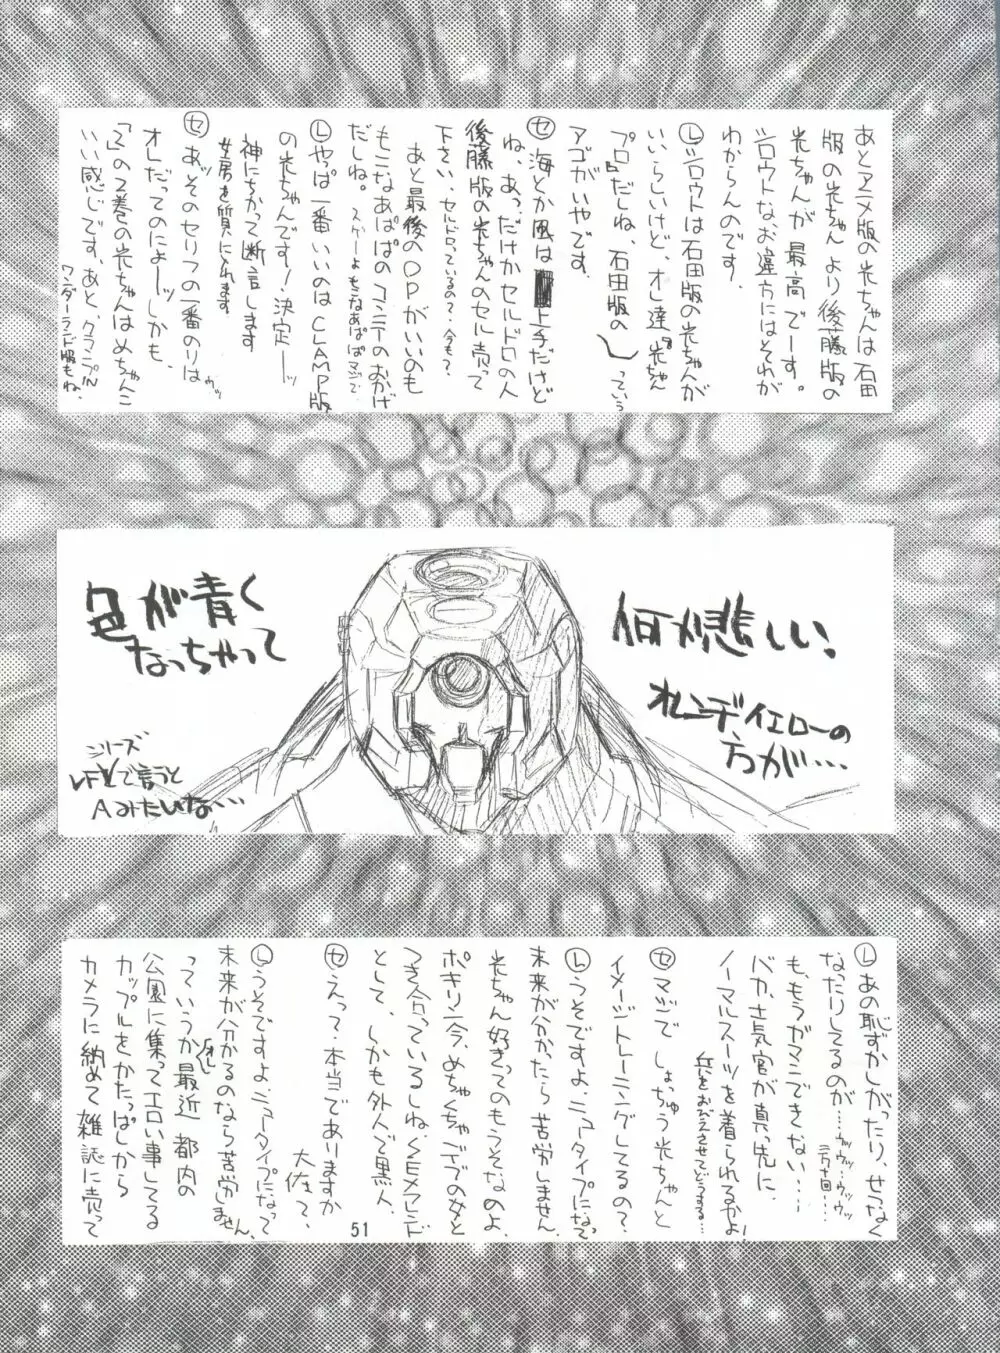 あとアニメ版の光ちゃんは石田
版の光ちゃんより後藤版の
光ちゃんが最高でーす。
シロウトな、お違方にはそれが
わからんのです。
Ⓛシロウトは石田版の光ちゃんが
いいらしいけど、オレ達『光ちゃん
プロ』だしね、石田版の
っていう
アゴがいやです。
㋝海とか風は上手だけど
ね、あっ、だけかセルドロの人
後藤版の光ちゃんのセル売って
下さい、セルドロっているの?今も?
あと最後のOPがいいのも
もこなあぱぱのコンテのおかげ
だしね。スゲーよもこなあぱぱマジで
Ⓛやっぱ一番いいのはCLAMP版
の光ちゃんです!決定ーッ
神にちかって断言します
女房を質に入れます
㋝あッそのセリフの一番のりは
オレだってのによーッしかも、
「2」の2巻の光ちゃんはめちゃんこ
いい感じです、あと、クランプIN
ワンダーランド版もね、
何か悲しい!
オレンヂ、イエローの
方が…
色が青く
なっちゃって
シリーズ
LFVで言うと
Aみたいな…
Ⓛあの恥ずかしがったり、せつなく
なったりしてるのが…ウッウッ…ウッウッ
も、もうガマンできない…
バカ、士気官が真っ先に
ノーマルスーツを着られるかよ!
兵をおびえさせてどうする…
㋝マジでしょっちゅう光ちゃんと
イメージトレーニングしてるの?
Ⓛうそですよ、ニュータイプになって
未来が分かったら苦労しません
光ちゃん好きってのもうそなのよ、
ポキリン今、めちゃくちゃデブの女と
つき合っているしね、SEXフレンド
として、しかも外人で黒人、
㋝えっ?本当でありますか
大佐って、
Ⓛうそですよ、ニュータイプになって
未来が分かるのなら苦労しません、
っていうかオレ最近 都内の
公園に集ってエロい事してる
カップルをかたっぱしから
カメラに納めて雑誌に売って
51